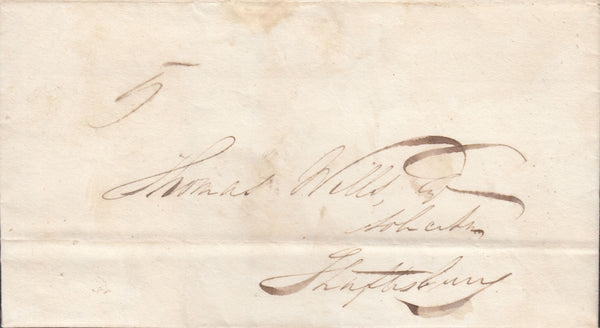 5
Thomas Wills Esq
Solicitor
Shaftesbury